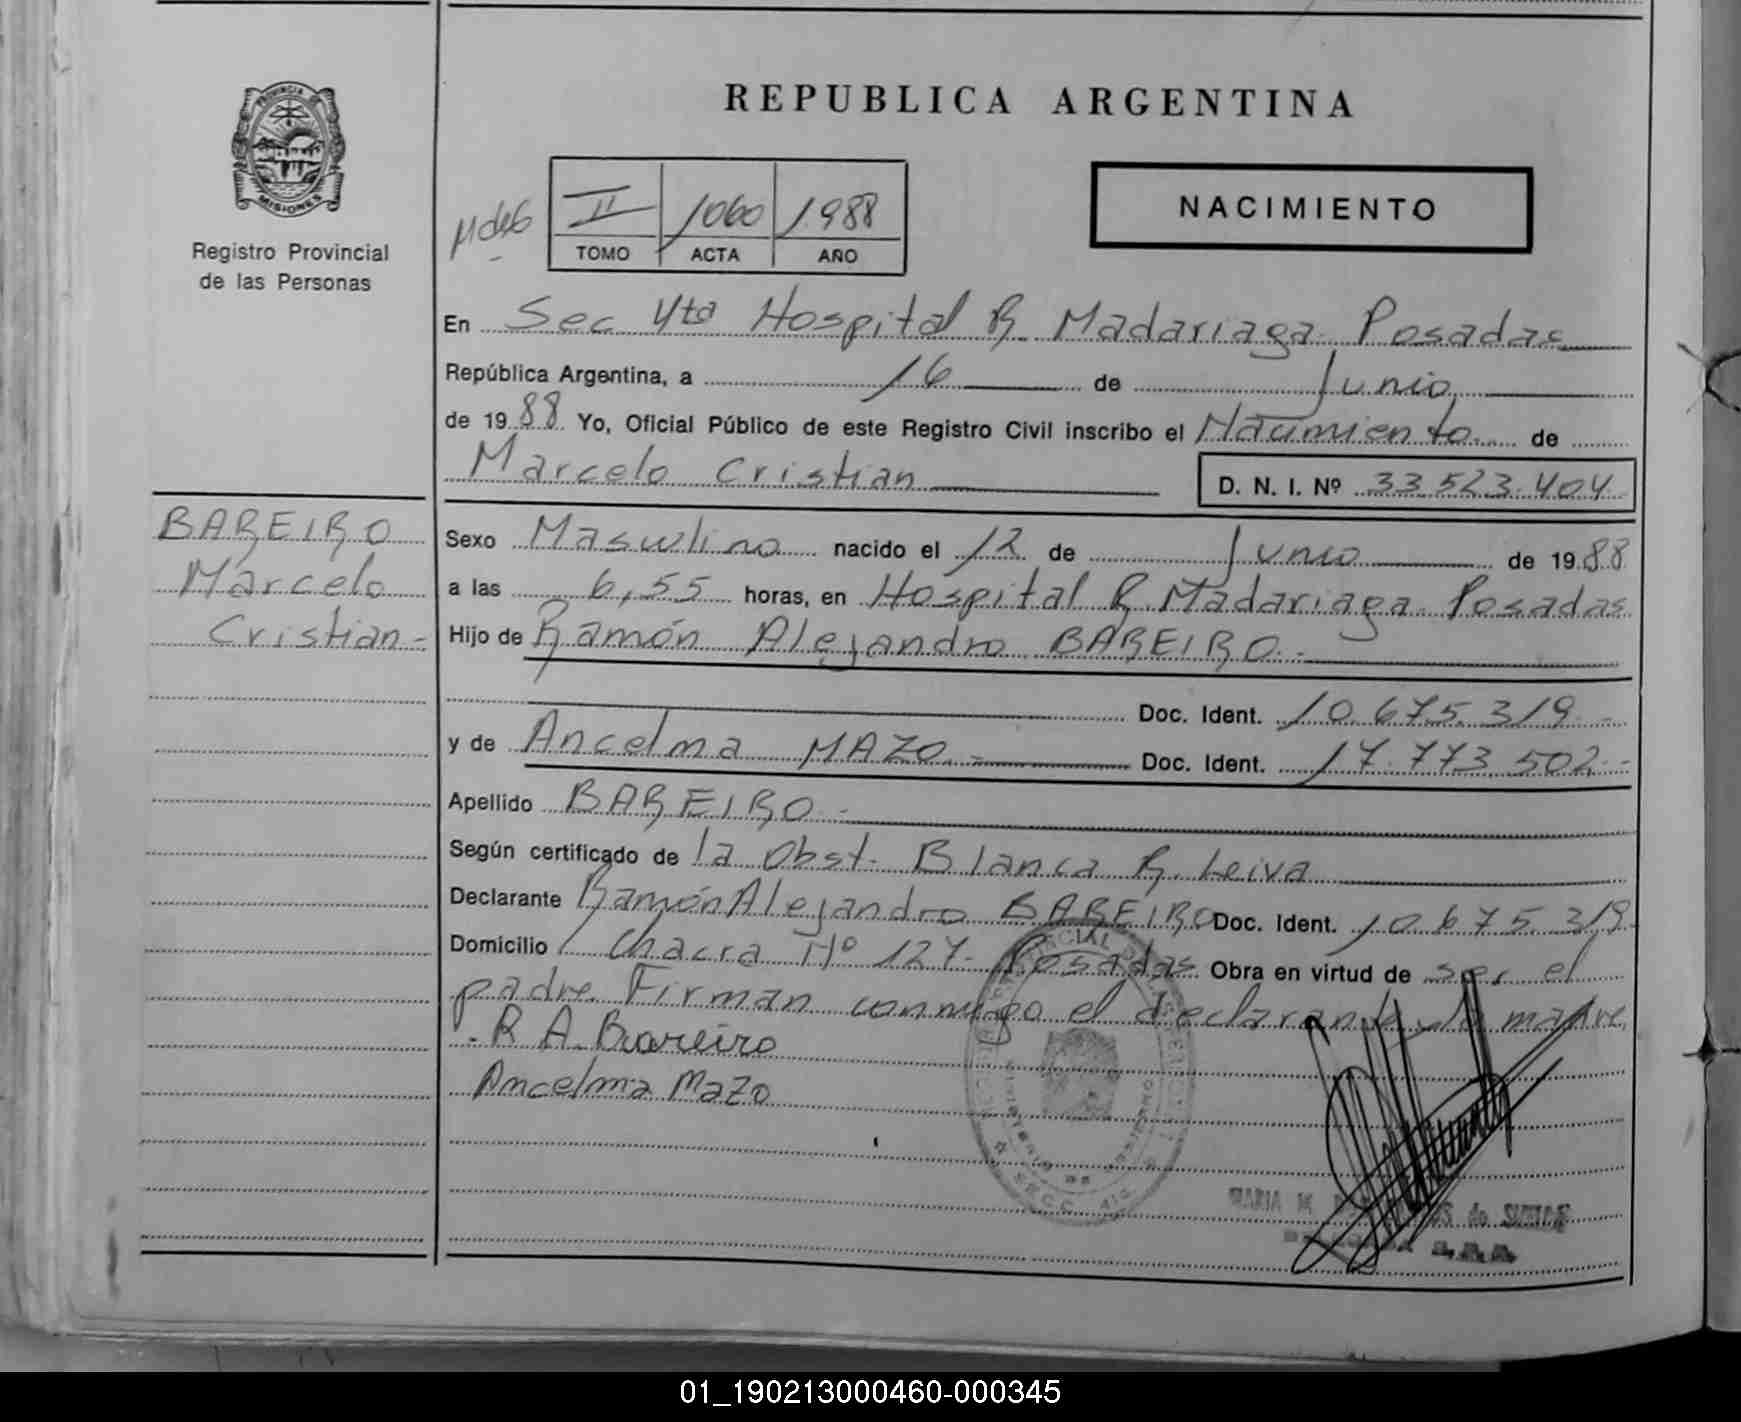 REPUBLICA ARGENTINA
PROVINCIA DE
MISIONES
Registro Provincial
de las Personas
II 1060 1.988
TOMO ACTA AÑO
NACIMIENTO
En Sec 4ta Hospital R Madariaga Posadas
República Argentina, a 16 de Junio
de 1988 Yo, Oficial Público de este Registro Civil inscribo el Nacimiento de
Marcelo Cristian D. N. I. Nº 33.523.404
BAREIRO
Marcelo
Cristian.-
Sexo Masculino nacido el 12 de Junio de 1988
a las 6,55 horas, en Hospital R Madariaga Posadas
Hijo de Ramón Alejandro BAREIRO.-
Doc. Ident. 10.675.319.-
y de Ancelma MAZO.- Doc. Ident. 17.773.502.-
Apellido BAREIRO.-
Según certificado de la Obst. Blanca R. Leiva
Declarante Ramón Alejandro BAREIRO Doc. Ident. 10.675.319.
Domicilio Chacra Nº 127- Posadas Obra en virtud de ser el
padre. Firman conmigo el declarante y la madre.
R A. Bareiro
Ancelma Mazo
01_190213000460-000345